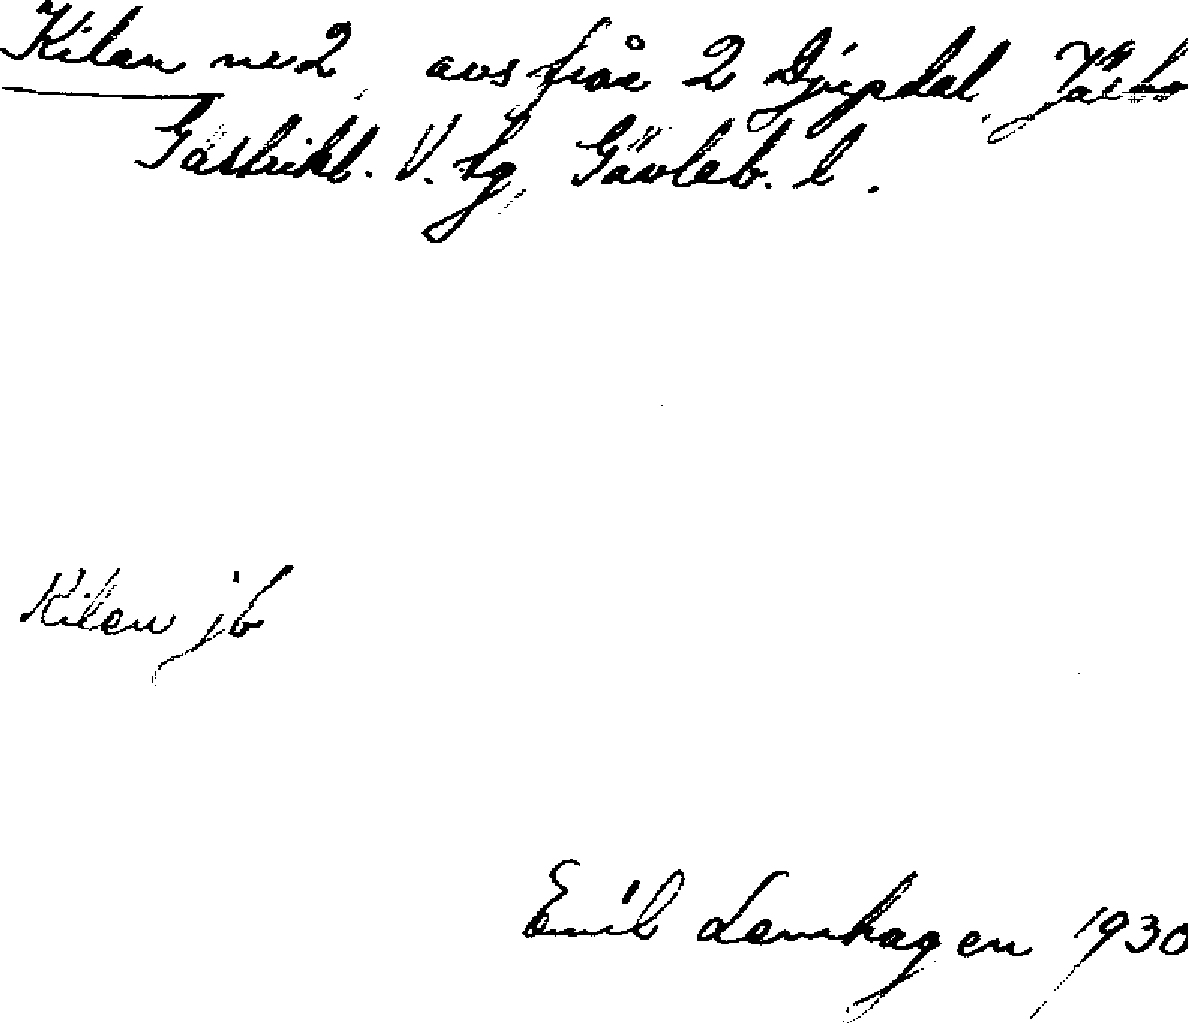 Kilen nr 2, avs från 2 Djupdal, Järbo
Gästrikl. V. tg, Gävleb. l.
Kilen jb
Emil Lennhagen 1930